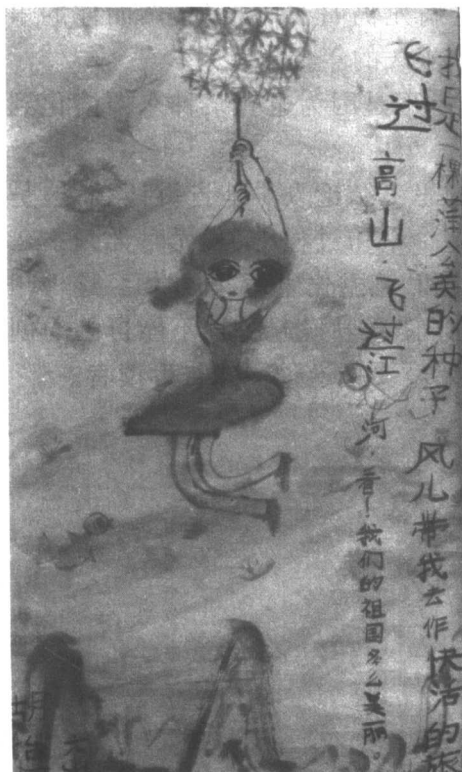 我是一棵蒲公英的种子 风儿带我去作快活的旅
飞过高山.飞过江河.看!我们的祖国多么美丽。